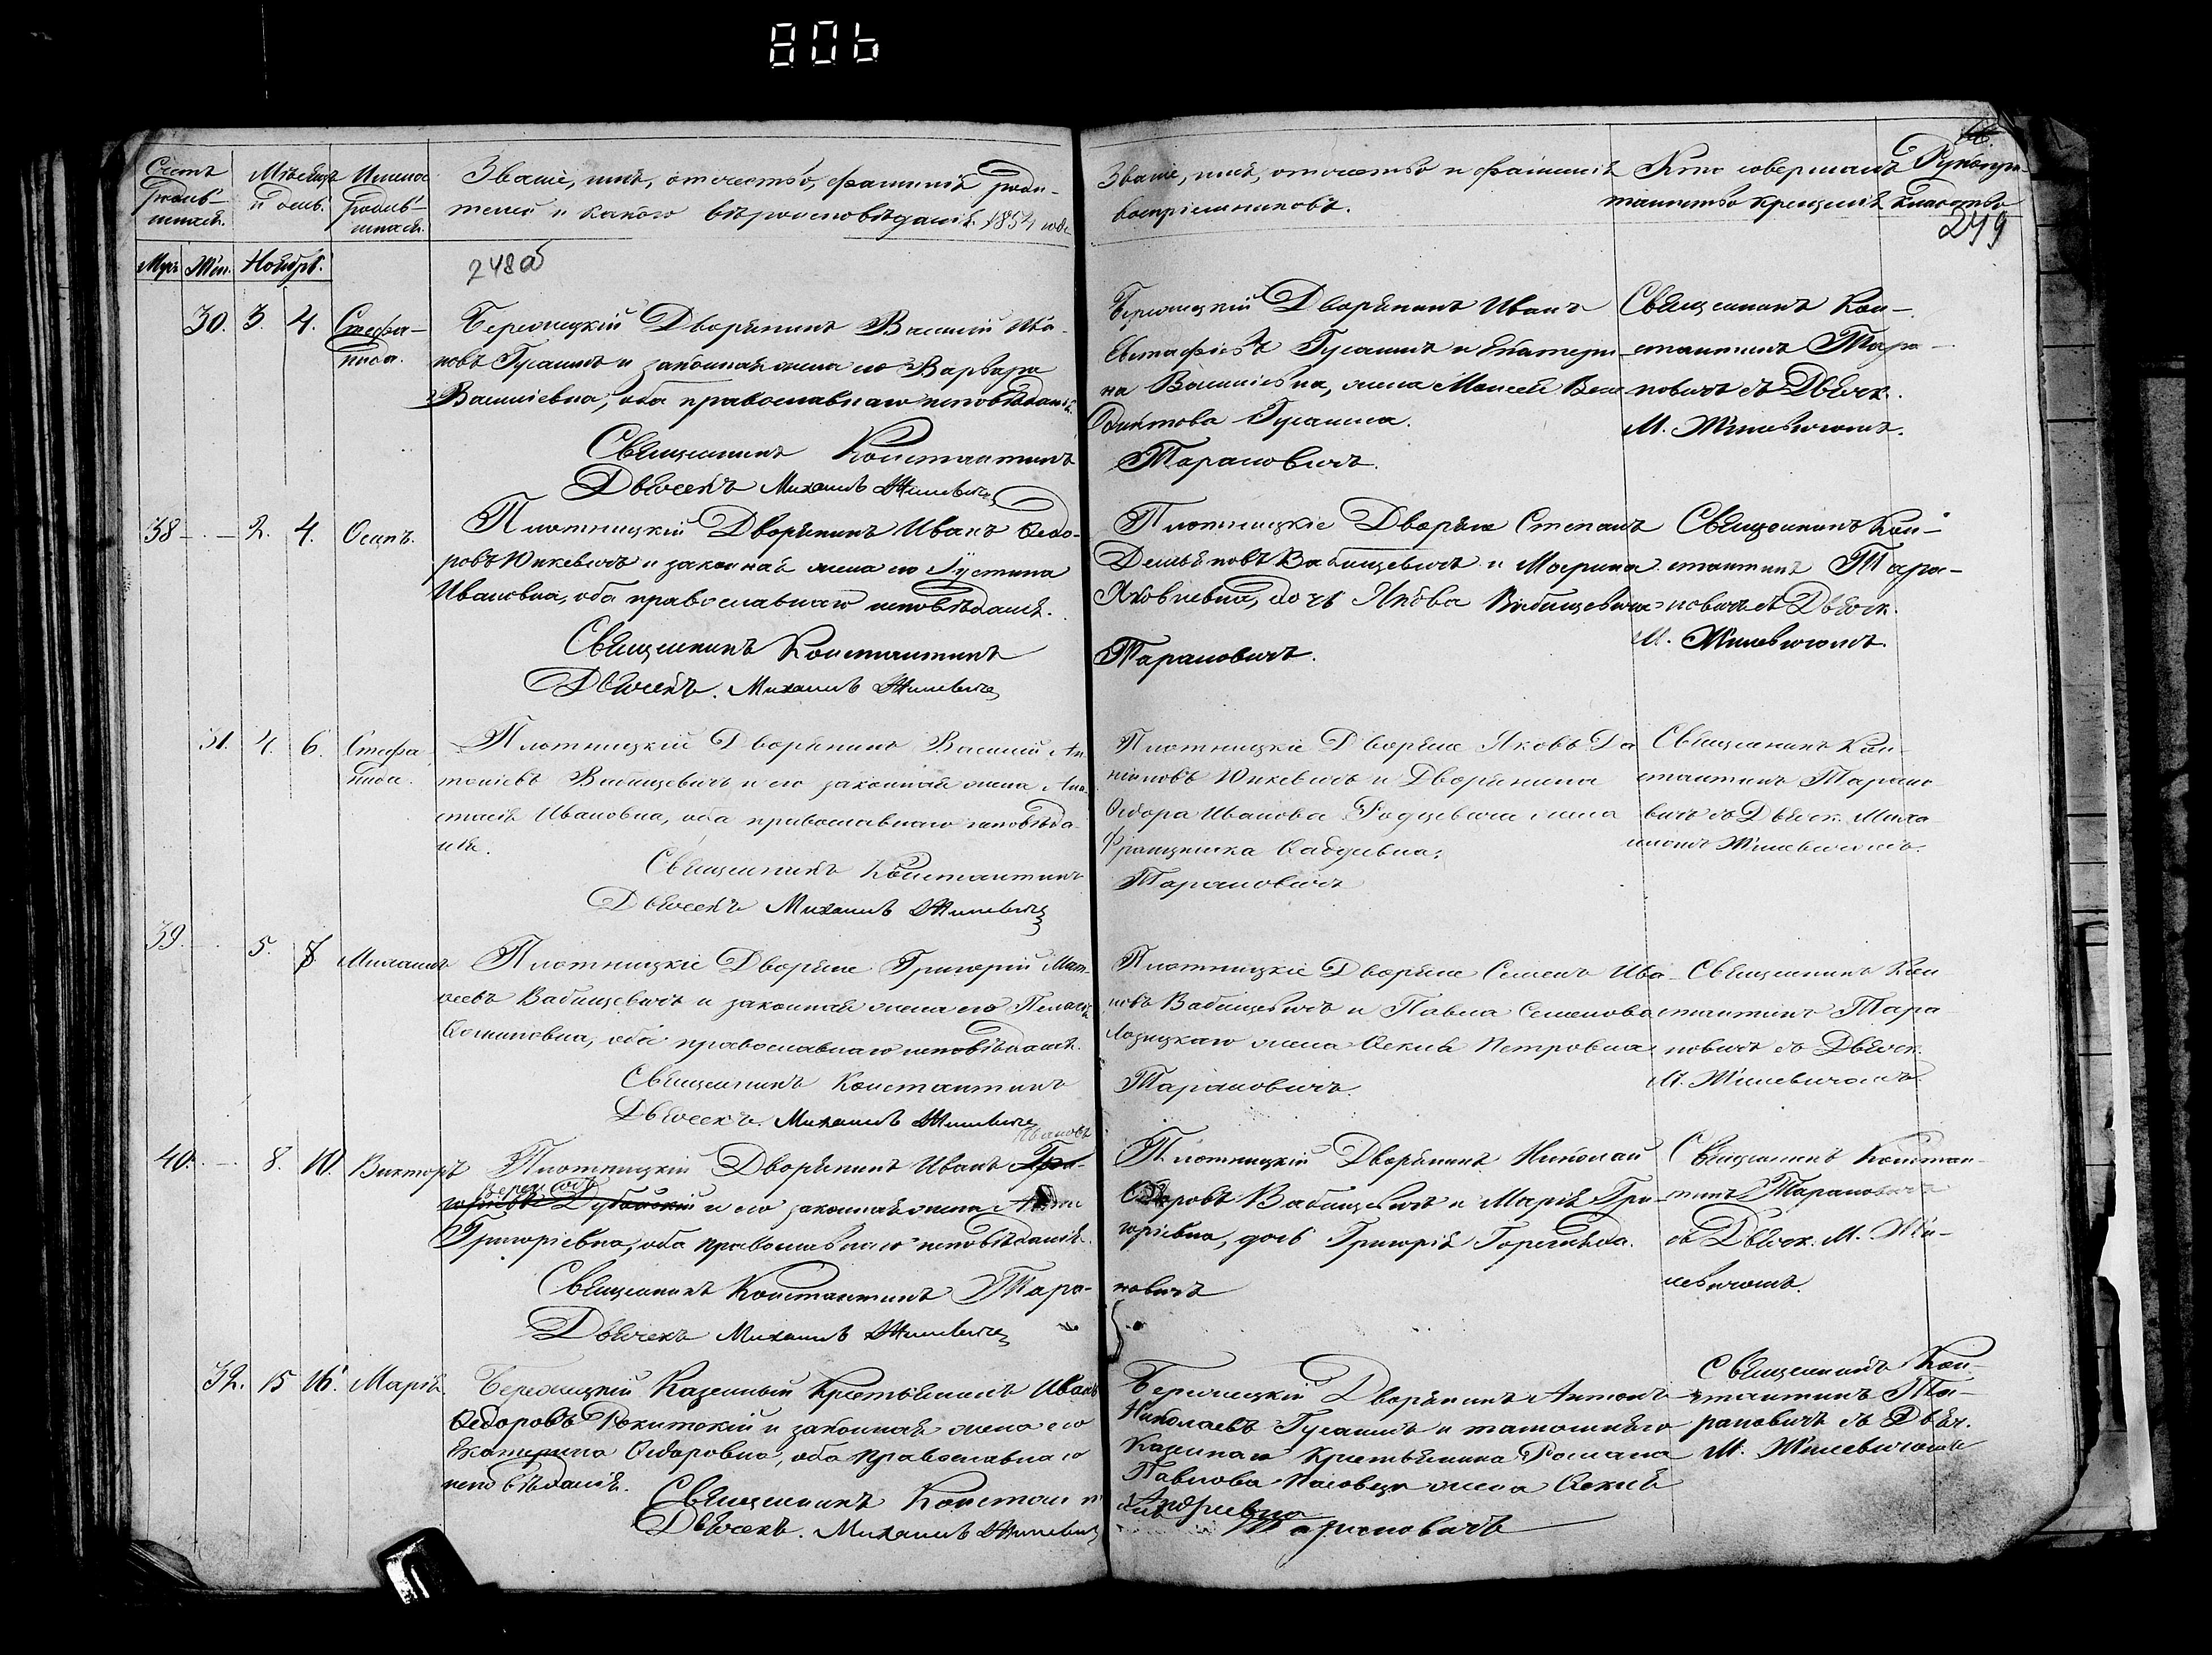 806
Счетъ родив-шихся.
Мѣсяцъ и день.
Имена родив-шихся.
Званіе, имя, отчество, фамилія роди-
телей и какого вѣроисповѣданія. 1854 года
Званіе, имя, отчество и фамилія
воспріемниковъ.
Кто совершалъ
таинство крещенія
Рукопри-
кладство
249
Муж. Жен. Ноябрь.
248 об
30. 3. 4. Стефа-
нида.
Бережецкій Дворянинъ Василій Ива-
новъ Гусаимъ и законная жена его Варвара
Василіевна, оба православнаго исповѣданія.
Священникъ Константинъ
Дьячекъ Михаилъ Жилевичъ
Бережецкій Дворянинъ Иванъ
Евстафіевъ Гусаимъ и Екатери-
на Василіевна, жена Моисея Вене-
диктова Гусаима.
Тарановичъ.
Священникъ Кон-
стантинъ Тара-
новичъ съ Дьячк.
М. Жилевичомъ.
38 2. 4. Осипъ.
Плотницкій Дворянинъ Иванъ Ѳедо-
ровъ Юнкевичъ и законная жена его Іустина
Ивановна, оба православнаго исповѣданія.
Священникъ Константинъ
Дьячекъ. Михаилъ Жилевичъ
Плотницкіе Дворяне Степанъ
Демьяновъ Вабищевичъ и Марина
Яковлевна, дочь Якова Вабищевича
Тарановичъ.
Священникъ Кон-
стантинъ Тара-
новичъ съ Дьячк.
М. Жилевичомъ.
31. 4. 6. Стефа
нида.
Плотницкій Дворянинъ Василій Ан
тоніевъ Вабищевичъ и его законная жена Ана
стасія Ивановна, оба православнаго исповѣда-
нія.
Священникъ Константинъ
Дьячекъ Михаилъ Жилевичъ
Плотницкіе Дворяне Яковъ Да
ніиловъ Юнкевичъ и Дворянина
Ѳедора Иванова Родцевича жена
Францишка
Тарановичъ
Священникъ Кон-
стантинъ Тарано-
вичъ съ Дьячк. Миха-
иломъ Жилевичомъ.
39. 5. 8 Михаилъ
Плотницкіе Дворяне Григорій Мат-
ѳеевъ Вабищевичъ и законная жена его Пелагія
оба православнаго исповѣданія.
Священникъ Константинъ
Дьячекъ. Михаилъ Жилевичъ
Плотницкіе Дворяне Семенъ Ива-
новъ Вабищевичъ и Павла Семенова
Лозицкаго жена Ѳекла Петровна
Тарановичъ.
Священникъ Кон
стантинъ Тара
новичъ съ Дьячк.
М. Жилевичомъ.
40. 8. 10. Викторъ
Ивановъ
Плотницкій Дворянинъ Иванъ Гри-
горіевъ Дубойскій и его законная жена Анна
Григоріевна, оба православнаго исповѣданія.
Священникъ Константинъ Тара-
Дьячекъ Михаилъ Жилевичъ
Плотницкій Дворянинъ Николай
Ѳедоровъ Вабищевичъ и Марія Гри-
горіевна, дочь Григорія
новичъ
Священникъ Констан-
тинъ Тарановичъ
съ Дьячк. М. Жи-
левичомъ.
32. 15 16. Марія.
Бережецкій Казенный Крестьянинъ Иванъ
Ѳедоровъ Рокитскій и законная жена его
Екатерина Ѳедоровна, оба православнаго
исповѣданія.
Священникъ Константи
Дьячекъ. Михаилъ Жилевичъ
Бережецкій Дворянинъ Антонъ
Николаевъ Гусаимъ и тамошняго
Казеннаго Крестьянина Романа
Павлова жена Ѳекла
Андреевна
Тарановичъ
Священникъ Кон-
стантинъ Та-
рановичъ съ Дьяч.
М. Жилевичомъ